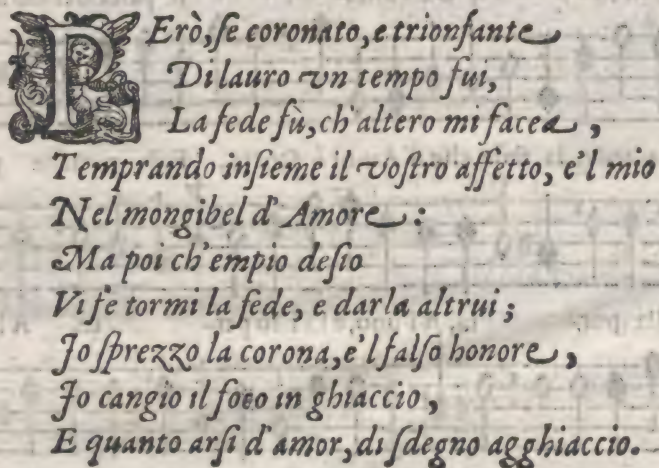 PErò, ſe coronato, e trionfante
Di lauro vn tempo fui,
La fede fù, ch'altero mi facea,
Temprando inſieme il voſtro affetto, e'l mio
Nel mongibel d'Amore:
Ma poi ch'empio deſio
Vi fe tormi la fede, e darla altrui;
Io ſprezzo la corona, e'l falſo honore,
Io cangio il foco in ghiaccio,
E quanto arſi d'amor, di ſdegno agghiaccio.